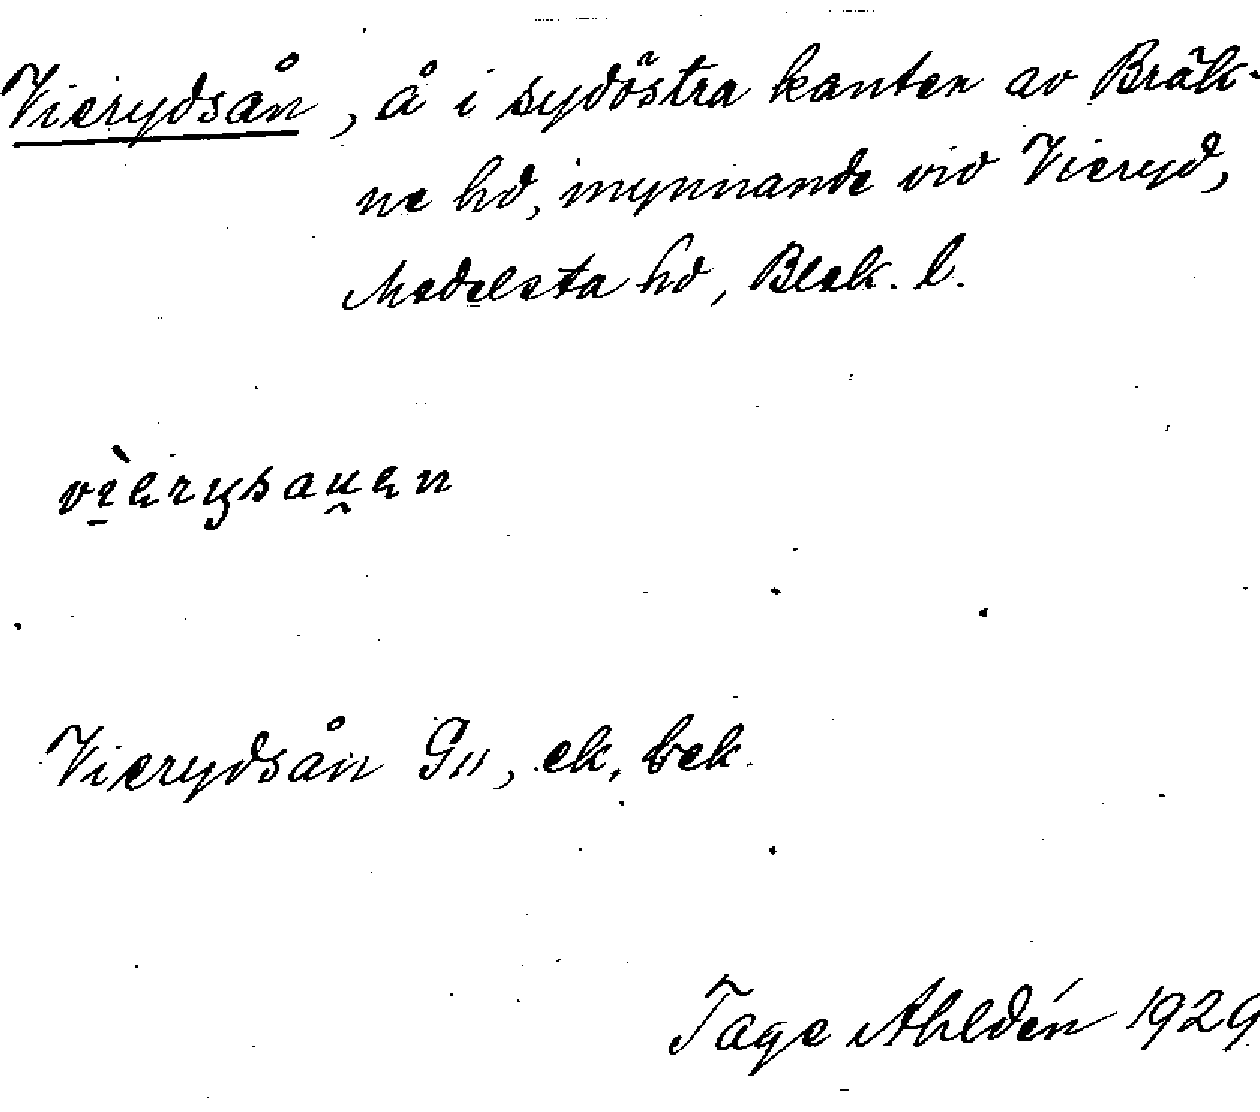 Vierydsån, å i sydöstra kanten av Bräk-
ne hd, mynnande vid Vieryd,
Medelsta hd, Blek. l.
vìerysau̯en
Vierydsån G11, ek, bek.
Tage Ahldén 1929